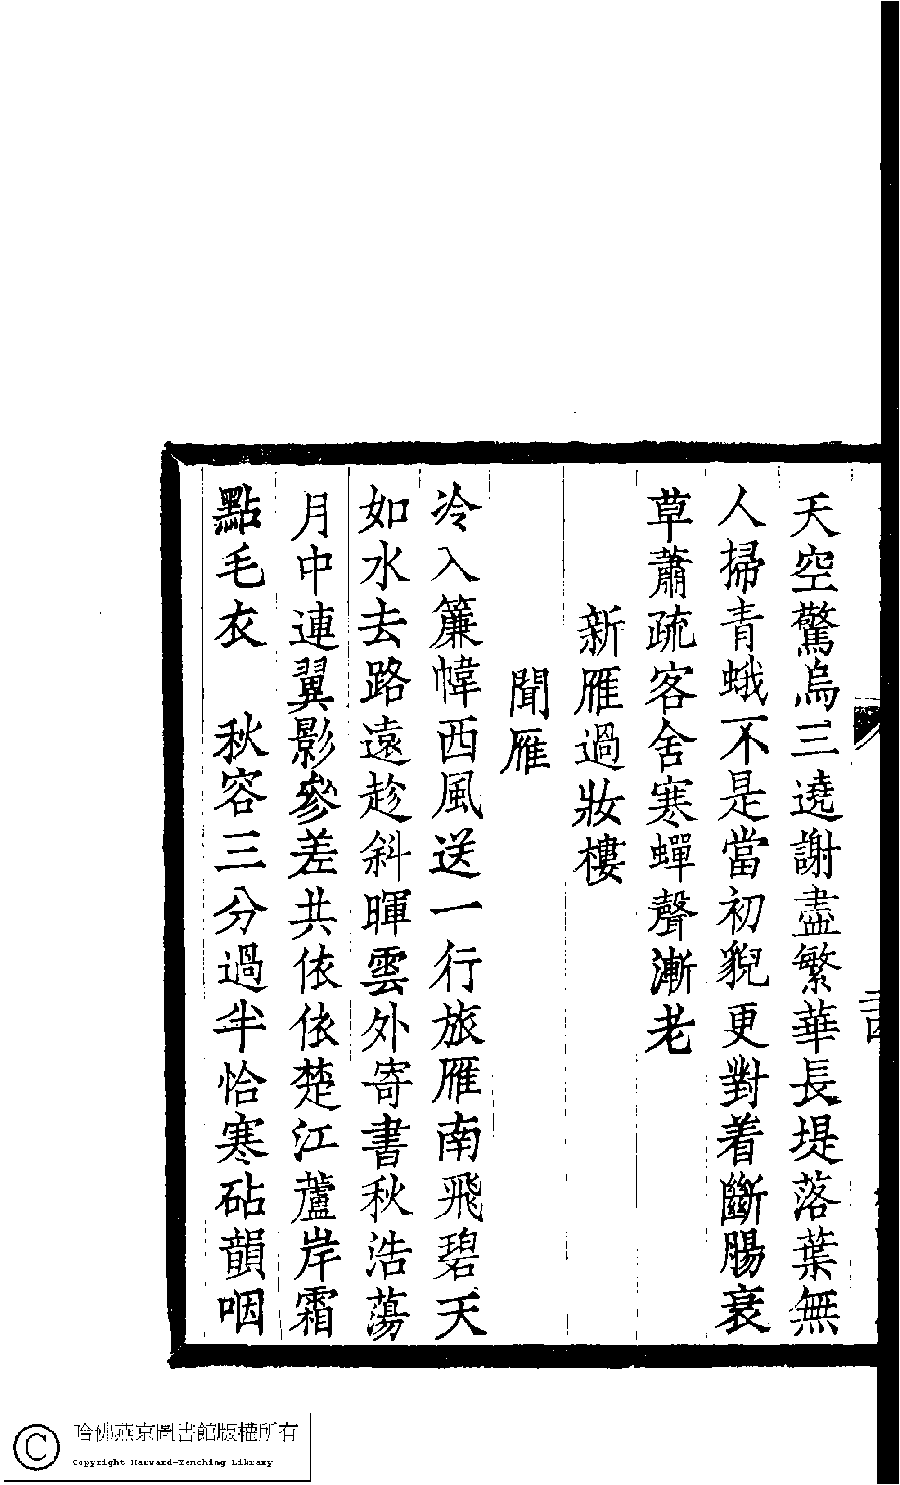 天空驚烏三遶謝盡繁華長堤落葉無
人掃青蛾不是當初貎更對着斷腸衰
草蕭疏客舍寒蟬聲漸老
新雁過妝樓
聞雁
冷入簾幃西風送一行旅雁南飛碧天
如水去路遠趁斜暉雲外寄書秋浩蕩
月中連翼影參差共依依楚江蘆岸霜
點毛衣　秋容三分過半恰寒砧韻咽
哈佛燕京圖書館版權所有
Copyright Harvard-Yenching Library